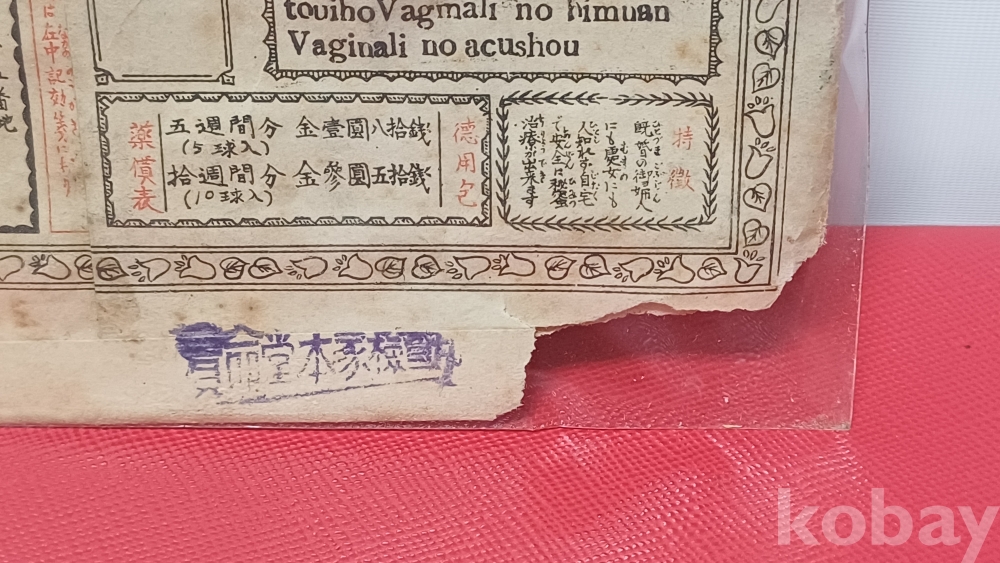 touiho Vaginali no himuan
Vaginali no acushou
は在中記効
薬價表
五週間分 金壹圓八拾銭
(5球入)
拾週間分 金參圓五拾銭
(10球入)
德用包
特徴
既婚の御婦人
にも處女にも
人知れず自宅
で安全に秘密
治療が出来ます
堂本家
kobay